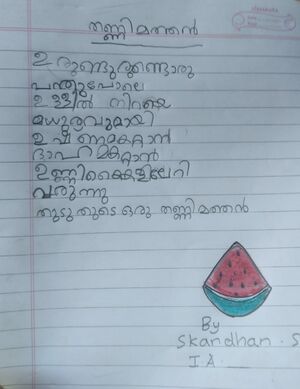 തണ്ണിമത്തൻ
ഉരുണ്ടുരുണ്ടൊരു
പന്തുപോലെ
ഉള്ളിൽ നിറയെ
മധുരവുമായി
ഉഷ്ണമകറ്റാൻ
ദാഹമകറ്റാൻ
ഉണ്ണിക്കൈകളിലേറി
വരുന്നു
തുടുതുടെ ഒരു തണ്ണിമത്തൻ
By
Skandhan. S
I A